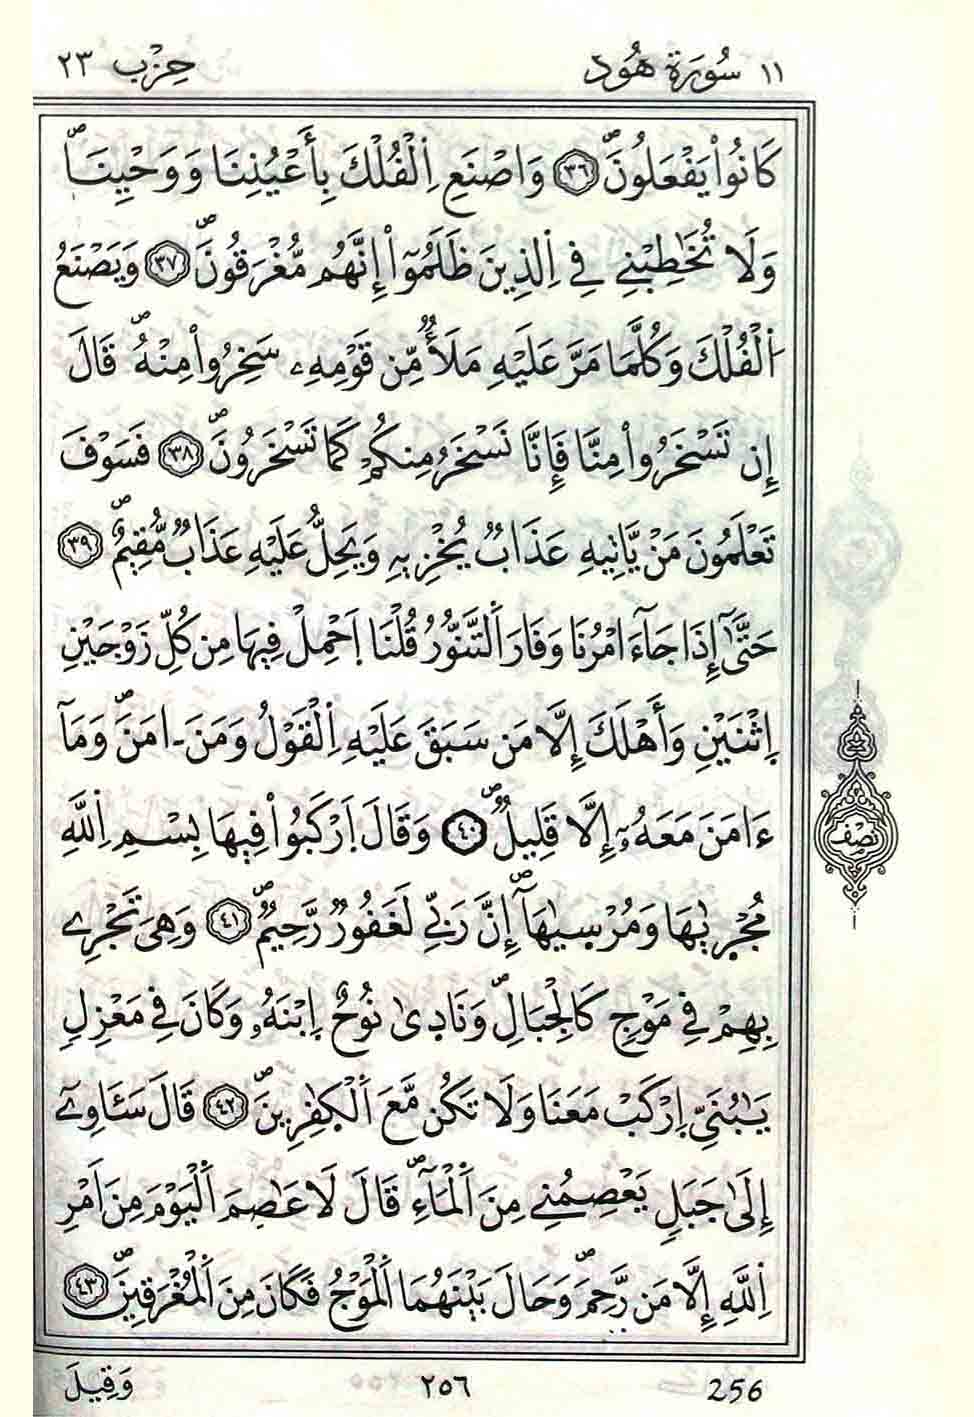 ١١ سُورَةُ هُود حِزْب ٢٣
كَانُواْ يَفْعَلُونَۖ ٣٦ وَاصْنَعِ اِ۬لْفُلْكَ بِأَعْيُنِنَا وَوَحْيِنَاۖ
وَلَا تُخَٰطِبْنِے فِے اِ۬لذِينَ ظَلَمُوٓاْ إِنَّهُم مُّغْرَقُونَۖ ٣٧ وَيَصْنَعُ
اُ۬لْفُلْكَ وَكُلَّمَا مَرَّ عَلَيْهِ مَلَأٞ مِّن قَوْمِهِۦ سَخِرُواْ مِنْهُۖ قَالَ
إِن تَسْخَرُواْ مِنَّا فَإِنَّا نَسْخَرُ مِنكُمْ كَمَا تَسْخَرُونَۖ ٣٨ فَسَوْفَ
تَعْلَمُونَ مَنْ يَّاتِيهِ عَذَابٞ يُخْزِيهِ وَيَحِلُّ عَلَيْهِ عَذَابٞ مُّقِيمٌۖ ٣٩
حَتَّىٰٓ إِذَا جَآءَ امْرُنَا وَفَارَ اَ۬لتَّنُّورُ قُلْنَا اَ۪حْمِلْ فِيهَا مِن كُلِّ زَوْجَيْنِ
اِ۪ثْنَيْنِ وَأَهْلَكَ إِلَّا مَن سَبَقَ عَلَيْهِ اِ۬لْقَوْلُ وَمَنَ ـ اٰمَنَۖ وَمَآ
ءَامَنَ مَعَهُۥٓ إِلَّا قَلِيلٞۖ ٤٠ وَقَالَ اَ۪رْكَبُواْ فِيهَا بِسْمِ اِ۬للَّهِ
مُجْر۪ىٰهَا وَمُرْسۭىٰهَآۖ إِنَّ رَبِّے لَغَفُورٞ رَّحِيمٞۖ ٤١ وَهِىَ تَجْرِے
بِهِمْ فِے مَوْجٖ كَالْجِبَالِۖ وَنَاد۪ىٰ نُوحٌ اِ۪بْنَهُۥ وَكَانَ فِے مَعْزِلٖ
يَٰبُنَيِّ اِ۪رْكَبْ مَعَنَا وَلَا تَكُن مَّعَ اَ۬لْكٰ۪فِرِينَۖ ٤٢ قَالَ سَـَٔاوِےٓ
إِلَىٰ جَبَلٖ يَعْصِمُنِے مِنَ اَ۬لْمَآءِۖ قَالَ لَا عَاصِمَ اَ۬لْيَوْمَ مِنَ اَمْرِ
اِ۬للَّهِ إِلَّا مَن رَّحِمَۖ وَحَالَ بَيْنَهُمَا اَ۬لْمَوْجُ فَكَانَ مِنَ اَ۬لْمُغْرَقِينَۖ ٤٣
نِصْف
وَقِيلَ ٢٥٦ 256